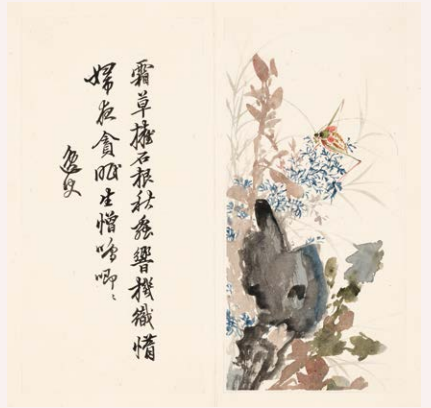 霜草擁石根秋蟲響機織惰
婦夜貪眠生憎鳴唧〻